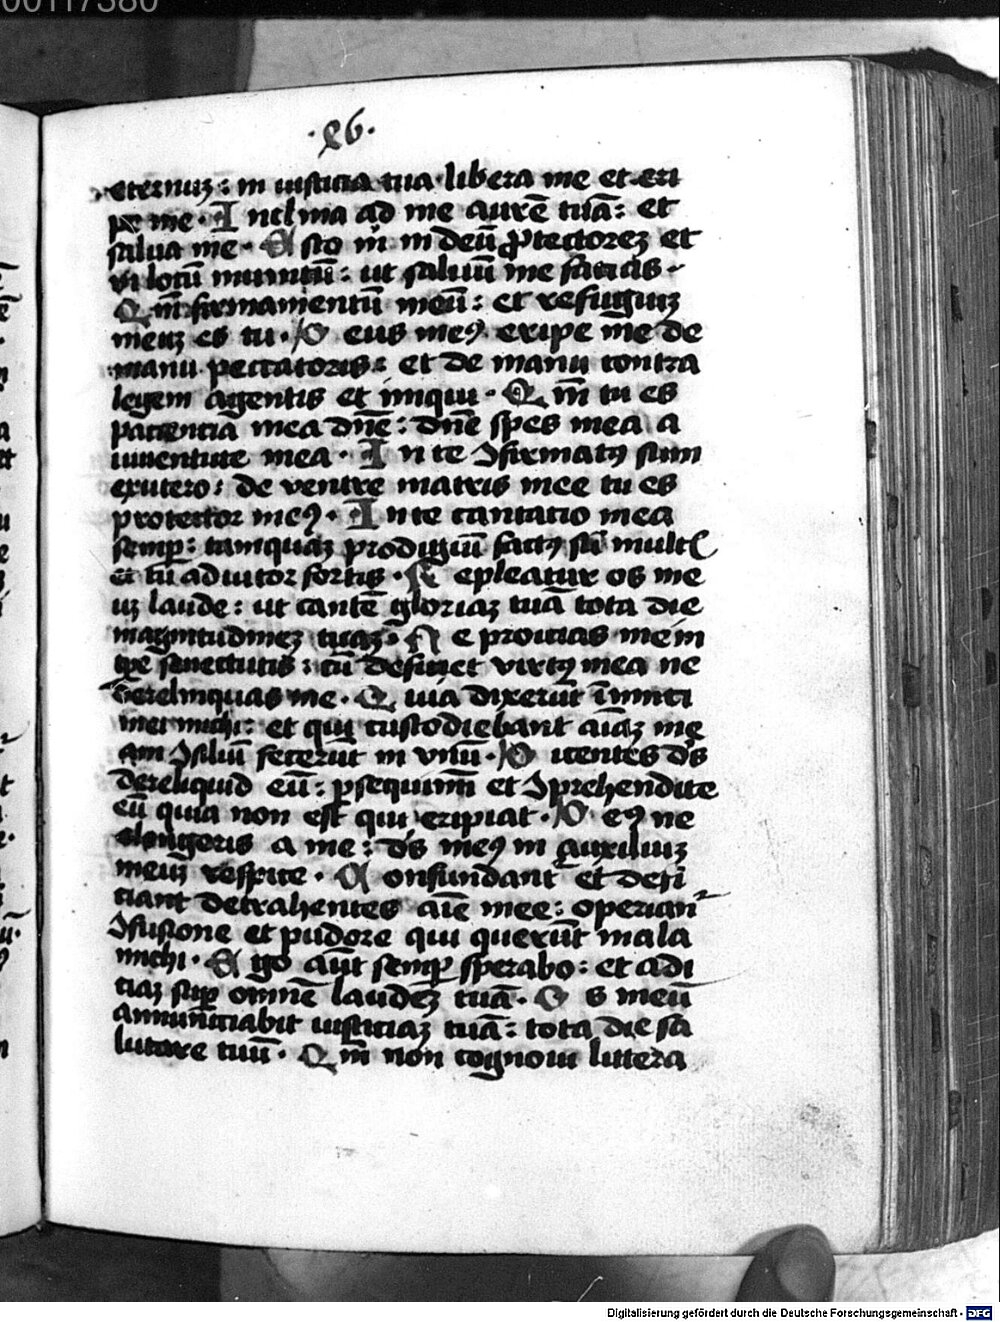 00117380
·96·
eternuz : in iusticia tua libera me et eri
pe me · Inclina ad me aurē tuā : et
salua me · Esto m̄ in deū ꝓtectorez et
in locū munitū : ut saluū me facias ·
Qm̄ firmamentū meū : et refugiuz
meuz es tu · Deus meꝰ eripe me de
manu peccatoris : et de manu contra
legem agentis et iniqui · Qm̄ tu es
paciencia mea dn̄e : dn̄e spes mea a
iuuentute mea · In te ɔfirmatꝰ sum
ex utero : de ventre matris mee tu es
protector meꝰ · In te cantatio mea
semꝑ : tamquaz prodigiū factꝰ sū mult
et tu adiutor fortis · Repleatur os me
uz laude : ut cantē gloriaz tuā tota die
magnitudinez tuaz · Ne proicias me in
tꝑe senectutis : cū defecet virtꝰ mea ne
derelinquas me · Quia dixerūt inimici
mei michi : et qui custodiebant aīaz me
am ɔsiliū fecerūt in vnū · Dicentes ds̄
dereliquid eū : ꝑsequimī et ɔprehendite
eū quia non est qui eripiat · Deꝰ ne
elongeris a me : ds̄ meꝰ in auxiliuz
meuz respice · Confundant̄ et defi
ciant detrahentes aīe mee : operian
ɔfusione et pudore qui querūt mala
michi · Ego aūt semꝑ sperabo : et adi
ciaz suꝑ omnē laudez tuā · Os meū
annunciabit iusticiaz tuā : tota die sa
lutare tuū · Qm̄ non cognoui littera
Digitalisierung gefördert durch die Deutsche Forschungsgemeinschaft - DFG